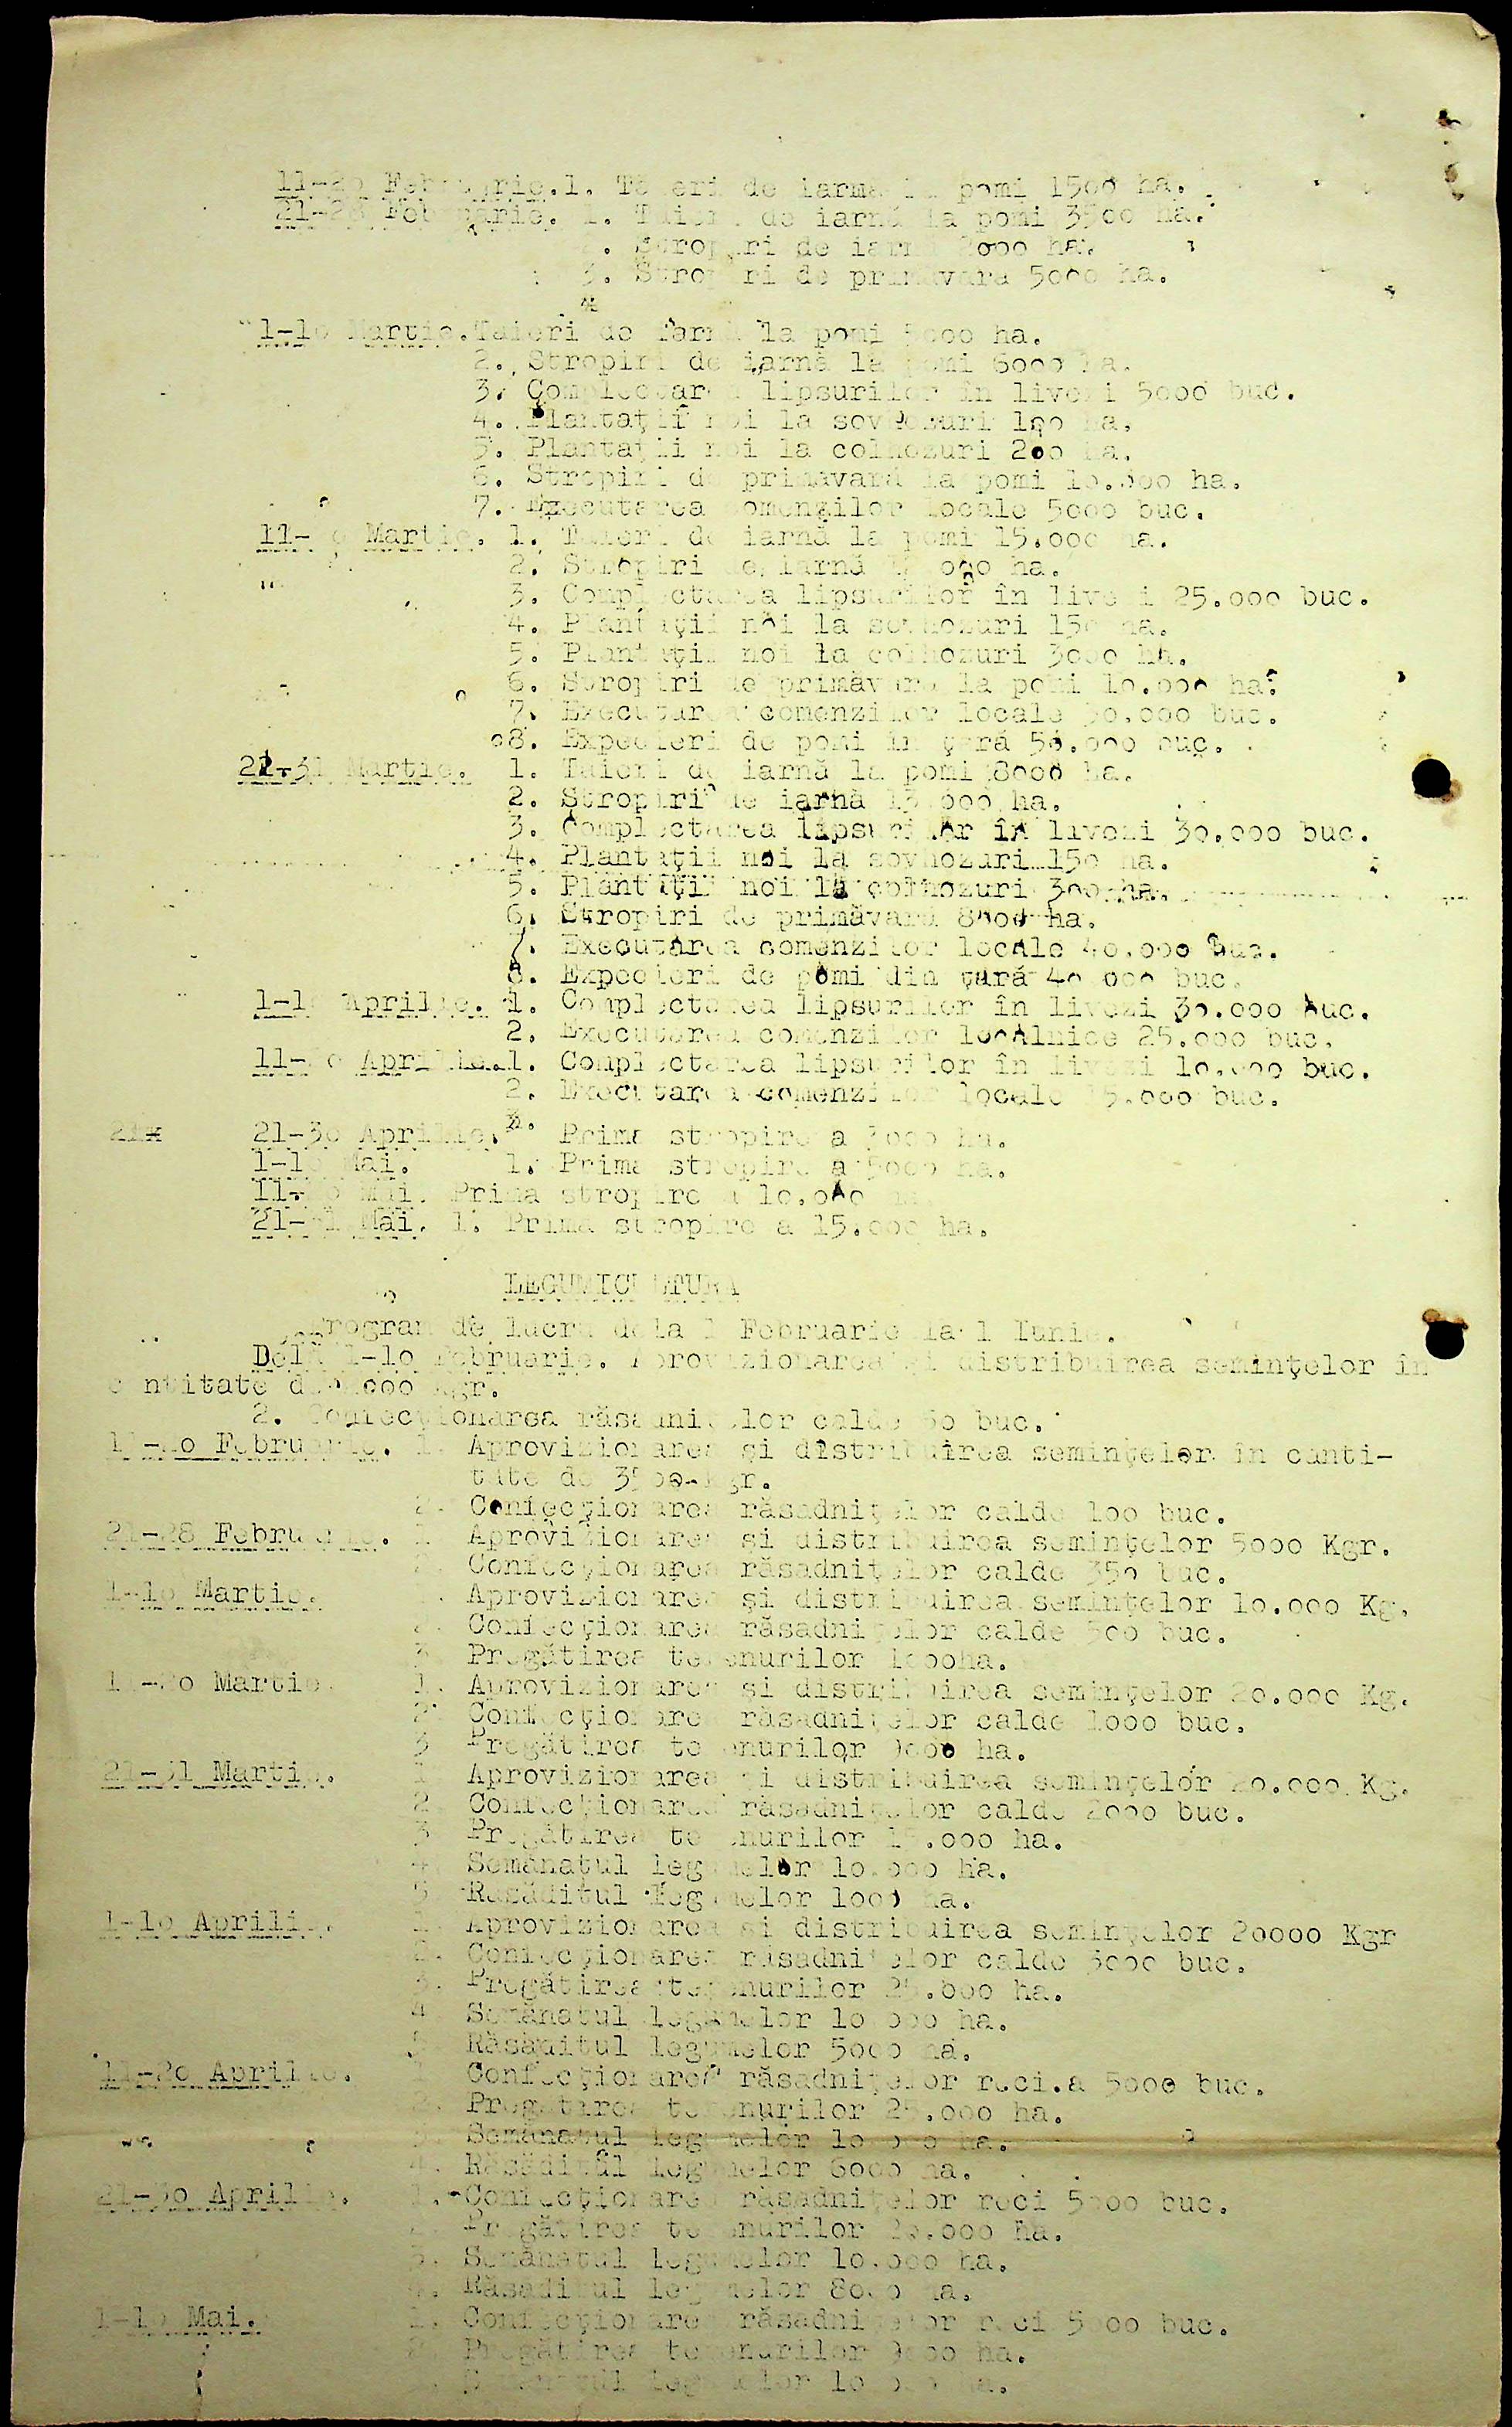 11-2o Februarie.1. Tăeri de iarnă la pomi 15oo ha.
21-28 Februarie. 1. Tăieri de iarnă la pomi 35oo ha.
2. Stropiri de iarnă ooo ha.
3. Stropiri de primăvară 5ooo ha.
1-1o Martie.Taieri de iarnă la pomi 5ooo ha.
2. Stropiri de iarnă la pomi 6ooo ha.
3. Complectarea lipsurilor în livezi 5ooo buc.
4. Plantaţii noi la sovhozuri 1oo ha.
5. Plantaţii noi la colhozuri 2oo ha.
6. Stropiri de primăvară la pomi ha.
7. Executarea comenzilor locale 5ooo buc.
11-2o Martie. 1. Taieri de iarnă la pomi 15.ooo ha.
2. Stropiri de iarnă ha.
3. Complectarea lipsurilor în livezi 25.ooo buc.
4. Plantaţii noi la sovhozuri 15o ha.
5. Plantaţii noi la colhozuri 3ooo ha.
6. Stropiri de primăvară la pomi 1o.ooo ha.
7. Executarea comenzilor locale buc.
8. Expedieri de pomi în ţară buc.
21-31 Martie. 1. Taieri de iarnă la pomi 8ooo ha.
2. Stropiri de iarnă ha.
3. Complectarea lipsurilor în livezi 3o.ooo buc.
4. Plantaţii noi la sovhozuri 15o ha.
5. Plantaţii noi la colhozuri 3oo ha.
6. Stropiri de primăvară 8ooo ha.
7. Executarea comenzilor locale 4o.ooo buc.
8. Expedieri de pomi din ţară 4o ooo buc.
1-1o Aprilie. 1. Complectarea lipsurilor în livezi 3o.ooo buc.
2. Executarea comenzilor localnice 25.ooo buc.
11-2o Aprilie.1. Complectarea lipsurilor în livezi 1o.ooo buc.
2. Executarea comenzilor locale buc.
21-3o Aprilie. Prima stropire a ha.
1-1o Mai. 1. Prima stropire a 5ooo ha.
11-2o Mai. Prima stropire a 1o.ooo ha.
21-31 Mai. 1. Prima stropire a 15.ooo ha.
LEGUMICULTURA
Program de lucru dela 1 Februarie la 1 Iunie.
Dela 1-1o Februarie. Aprovizionarea şi distribuirea seminţelor în
cantitate de Kgr.
2. Confecţionarea răsadniţelor calde 5o buc.
11-2o Februarie. 1. Aprovizionarea şi distribuirea seminţelor în canti-
tate de 35oo Kgr.
2. Confecţionarea răsadniţelor calde 1oo buc.
21-28 Februarie. 1. Aprovizionarea şi distribuirea seminţelor 5ooo Kgr.
2. Confecţionarea răsadniţelor calde 35o buc.
1-1o Martie. 1. Aprovizionarea şi distribuirea seminţelor 1o.ooo Kg.
2. Confecţionarea răsadniţelor calde 5oo buc.
3. Pregătirea terenurilor 1oooha.
11-2o Martie. 1. Aprovizionarea şi distribuirea seminţelor 2o.ooo Kg.
2. Confecţionarea răsadniţelor calde 1ooo buc.
3. Pregătirea terenurilor 9ooo ha.
21-31 Martie. 1. Aprovizionarea şi distribuirea seminţelor 2o.ooo Kg.
2. Confecţionarea răsadniţelor calde 2ooo buc.
3. Pregătirea terenurilor ha.
4. Semănatul legumelor 1o.ooo ha.
5. Răsăditul legumelor 1ooo ha.
1-1o Aprilie. 1. Aprovizionarea şi distribuirea seminţelor 2oooo Kgr
2. Confecţionarea răsadniţelor calde 3ooo buc.
3. Pregătirea terenurilor 25.ooo ha.
4. Semănatul legumelor 1o ooo ha.
5. Răsăditul legumelor 5ooo ha.
11-2o Aprilie. 1. Confecţionarea răsadniţelor reci.a 5ooo buc.
2. Pregătirea terenurilor 25.ooo ha.
3. Semănatul legumelor 1o ooo ha.
4. Răsăditul legumelor 6ooo ha.
21-3o Aprilie. 1. Confecţionarea răsadniţelor reci 5ooo buc.
2. Pregătirea terenurilor 2o.ooo ha.
3. Semănatul legumelor 1o.ooo ha.
4. Răsăditul legumelor 8ooo ha.
1-1o Mai. 1. Confecţionarea răsadniţelor reci 5ooo buc.
2. Pregătirea terenurilor 9ooo ha.
3. Semănatul legumelor 1o ooo ha.